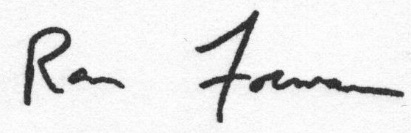 Ron Forman